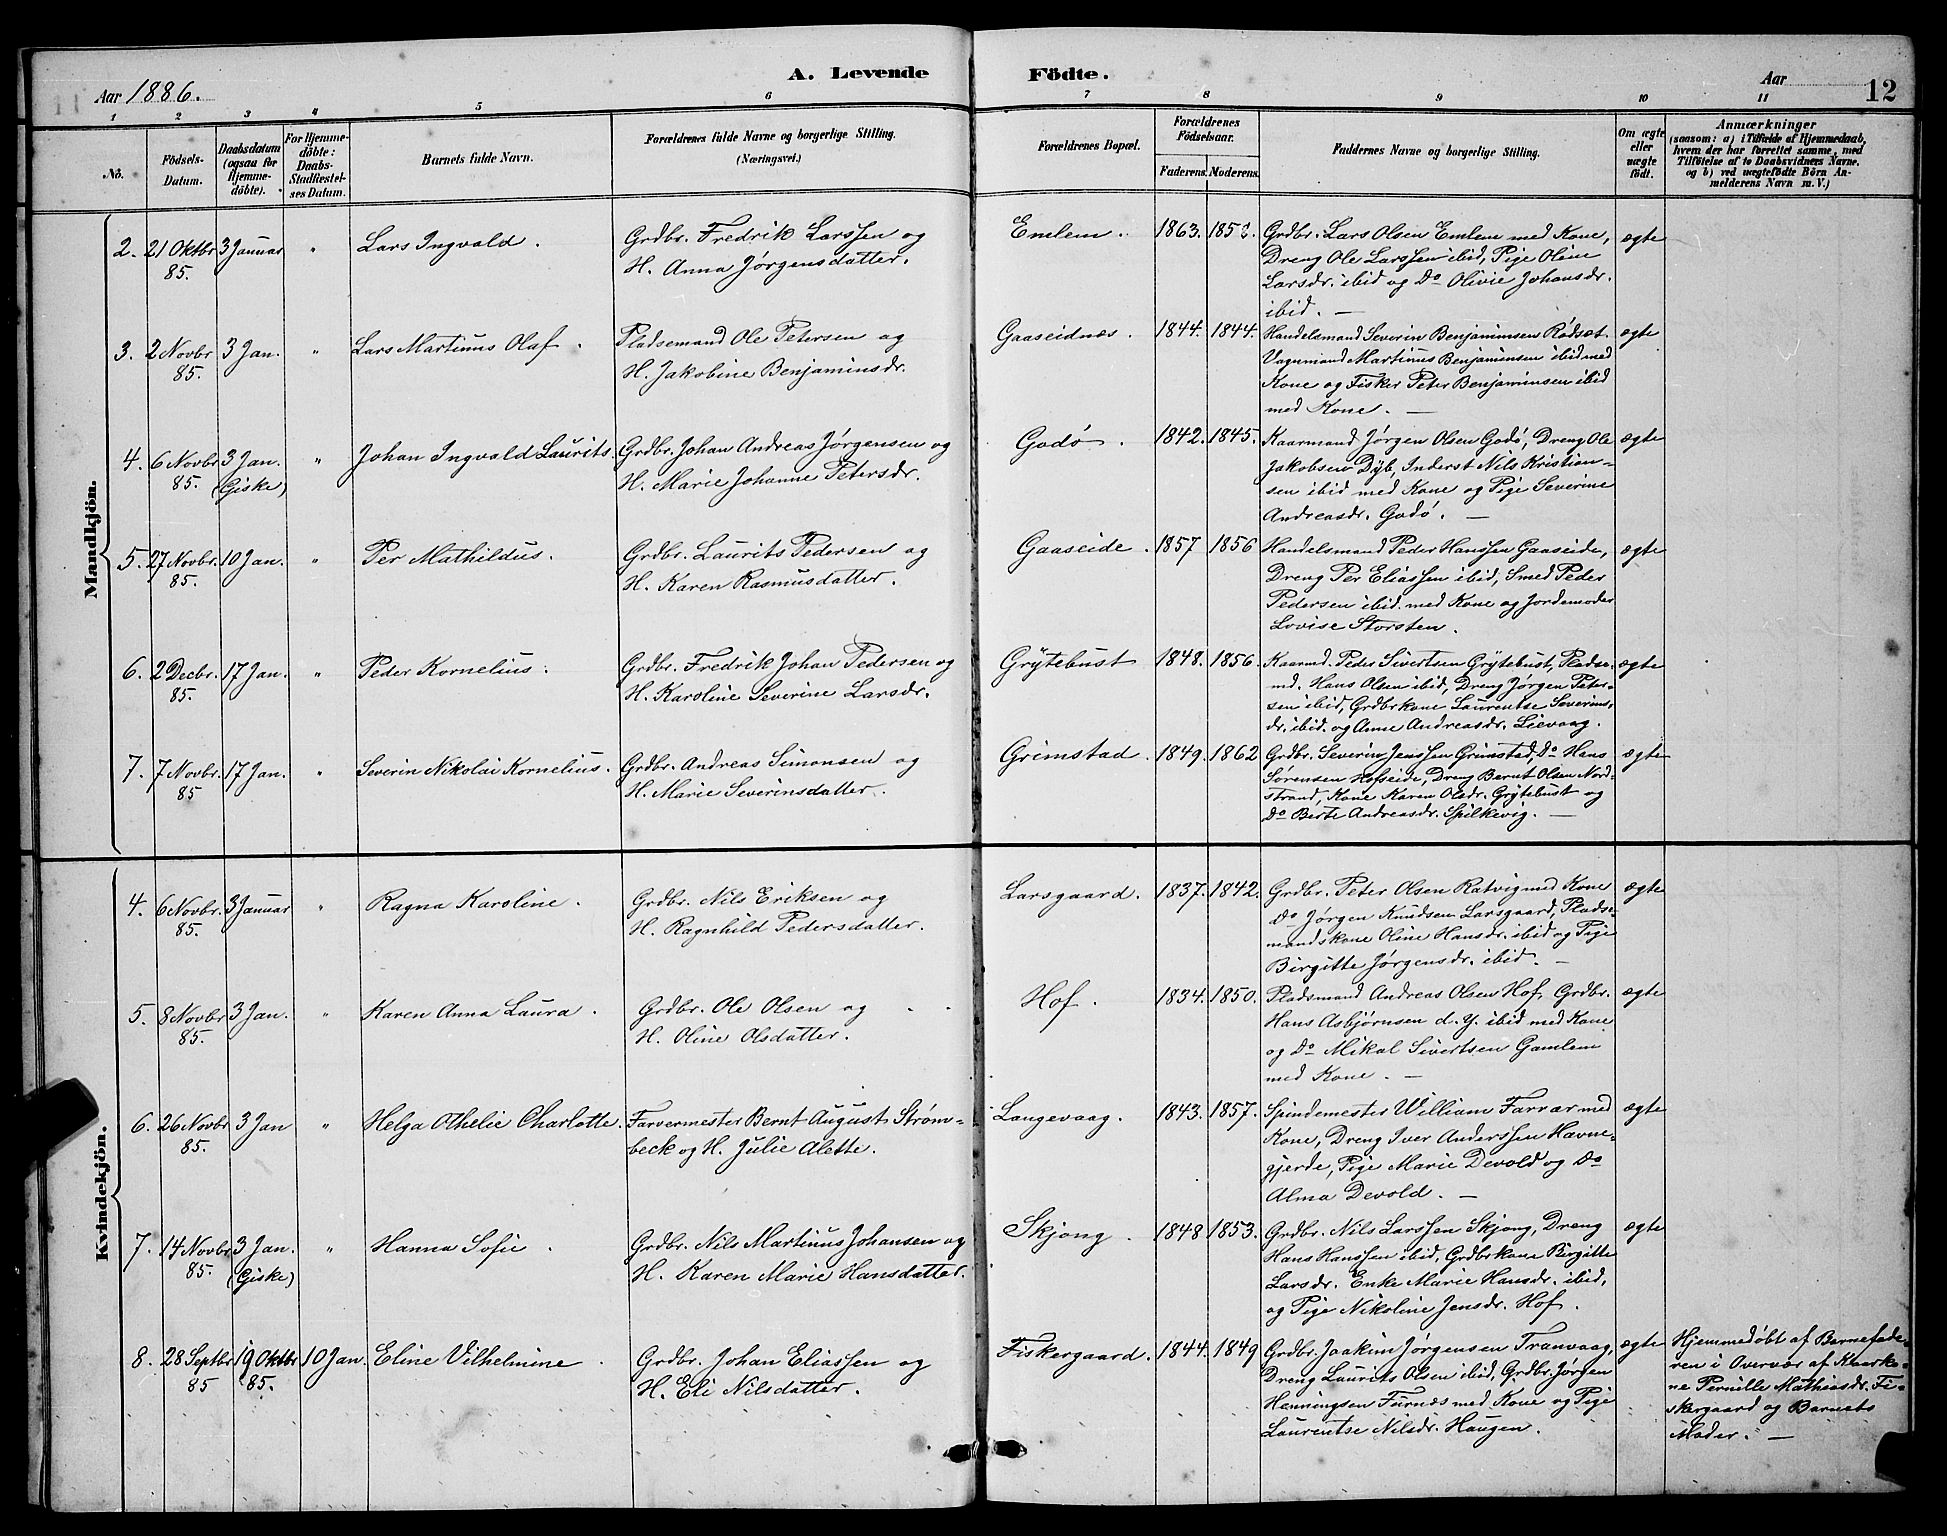 A. Levende Födte.
Aar 1886.
Aar
12
1 2 3 4 5 6 7 8 9 10 11
No.
Födsels-Datum.
Daabsdatum (ogsaa for Hjemme-döbte).
For Hjemme-döbte: Daabs-Stadfæstel-ses Datum.
Barnets fulde Navn.
Forældrenes fulde Navne og borgerlige Stilling.
(Næringsvei.)
Forældrenes Bopæl.
Forældrenes Födselsaar.
Faderens. Moderens.
Faddernes Navne og borgerlige Stilling.
Om ægte eller uægte født.
Anmærkninger
(saasom: a) i Tilfælde af Hjemmedaab,
hvem der har forrettet samme, med
Tilföielse af to Daabsvidners Navne.
og b) ved uægtefödte Börn An-
melderens Navn m.V.)
Mandkjön.
2. 21 Oktbr 85. 3 Januar " Lars Ingvald.
Grdbr. Fredrik Larssen og
H. Anna Jørgensdatter.
Emlem. 1863.
Grdbr. Lars Olsen Emlem med Kone,
Dreng Ole Larssen ibid, Pige Oline
Larsdr. ibid og Do Olivie Johansdr.
ibid. —
ægte
3. 2 Novbr 85. 3 Jan. " Lars Martinus Olaf.
Pladsemand Ole Petersen og
H. Jakobine Benjaminsdr.
Gaaseidnæs. 1844. 1844.
Handelsmand Severin Benjaminsen Rødsæt.
Vognmand Martinus Benjaminsen ibid med
Kone og Fisker Peter Benjaminsen ibid
med Kone. —
ægte
4. 6 Novbr 85. 3 Jan. (Giske) " Johan Ingvald Laurits.
Grdbr. Johan Andreas Jørgensen og
H. Marie Johanne Petersdr.
Godø. 1842. 1845.
Kaarmand Jørgen Olsen Godø, Dreng Ole
Jakobsen Dyb, Inderst Nils Kristian-
sen ibid med Kone og Pige Severine
Andreasdr. Godø. —
ægte
5. 27 Novbr. 85. 10 Jan. " Per Mathildus.
Grdbr. Laurits Pedersen og
H. Karen Rasmusdatter.
Gaaseide. 1857 1856
Handelsmand Peder Hanssen Gaaseide,
Dreng Per Eliassen ibid, Smed Peder
Pedersen ibid. med Kone og Jordemoder
Lovise Storsten.
ægte
6. 2 Decbr. 85. 17 Jan. " Peder Kornelius.
Grdbr. Fredrik Johan Pedersen og
H. Karoline Severine Larsdr.
Grytebust 1848. 1856.
Kaarmd. Peder Sivertsen Grytebust, Pladse-
md. Hans Olsen ibid, Dreng Jørgen Peter-
sen ibid, Grdbrkone Laurentse Severins-
dr. ibid. og Anne Andreasdr. Lievaag.
ægte
7. 7 Novbr. 85 17 Jan. " Severin Nikolai Kornelius.
Grdbr. Andreas Simonsen og
H. Marie Severinsdatter.
Grimstad. 1849. 1862
Grdbr. Severin Jenssen Grimstad, Do Hans
Sørensen Hofseide, Dreng Bernt Olsen Nord-
strand, Kone Karen Olsdr. Grytebust og
Do Berte Andreasdr. Spilkevig. —
ægte
Kvindekjön.
4. 6 Novbr. 85. 3 Januar " Ragna Karoline.
Grdbr. Nils Eriksen og
H. Ragnhild Pedersdatter.
Larsgaard. 1837. 1842.
Grdbr. Peter Olsen Ratvig med Kone
Do Jørgen Knudsen Larsgaard, Pladse-
mandskone Oline Hansdr. ibid og Pige
Birgitte Jørgensdr. ibid. —
ægte
5. 8 Novbr 85. 3 Jan. " Karen Anna Laura.
Grdbr. Ole Olsen og
H. Oline Olsdatter.
Hof. 1834. 1850.
Pladsmand Andreas Olsen Hof, Grdbr.
Hans Asbjørnsen d. y. ibid med Kone
og Do Mikal Sivertsen Gamlem
med Kone. —
ægte
6. 26 Novbr 85. 3 Jan " Helga Othelie Charlotte.
Farvermester Bernt August Strøm-
beck og H. Julie Alette.
Langevaag. 1843. 1857.
Spindemester William Farrar med
Kone, Dreng Iver Anderssen Havne-
gjerde, Pige Marie Devold og Do
Alma Devold. —
ægte
7. 14 Novbr 85. 3 Jan. (Giske) " Hanna Sofie.
Grdbr. Nils Martinus Johansen og
H. Karen Marie Hansdatter.
Skjong. 1848 1853.
Grdbr. Nils Larssen Skjong, Dreng
Hans Hanssen ibid, Grdbrkone Birgitte
Larsdr. Enke Marie Hansdr. ibid,
og Pige Nikoline Jensdr. Hof.
ægte
8. 28 Septbr 85 19 Oktbr 85. 10 Jan. Eline Vilhelmine.
Grdbr. Johan Eliassen og
H. Eli Nilsdatter.
Fiskergaard. 1844. 1849
Grdbr. Joakim Jørgensen Tranvaag,
Dreng Laurits Olsen ibid, Grdbr. Jørgen
Henningsen Furnæs med Kone og Pige
Laurentse Nilsdr. Haugen.
ægte
Hjemmedøbt af Barnefade-
ren i Overvær af Kaarko-
ne Pernille Mathiasdr. Fi-
skergaard og Barnets
Moder. —